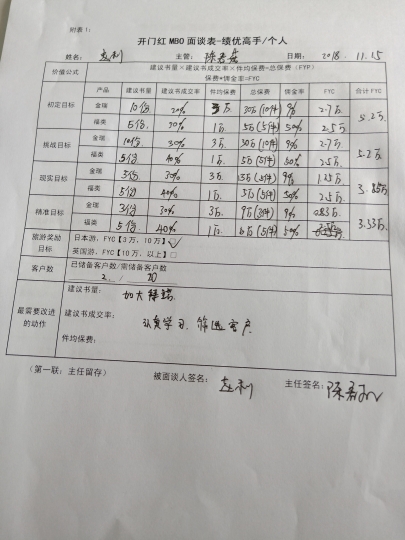 附表1:
开门红 MBO 面谈表-绩优高手/个人
姓名: 主管: 日期: 2018.11.15
价值公式 建议书量×建议书成交率×件均保费=总保费(FYP)
保费×佣金率=FYC
产品 建议书量 建议书成交率 件均保费 总保费 佣金率 FYC 合计 FYC
初定目标 金瑞 10份 20% 3万 30万(10件) 9% 2.7万 5.2万
福类 5份 30% 1万 5万(5件) 50% 2.5万
挑战目标 金瑞 10份 30% 3万 30万(10件) 9% 2.7万 5.2万
福类 5份 40% 1万 5万(5件) 50% 2.5万
现实目标 金瑞 5份 30% 3万 9% 1.25万 3.85万
福类 5份 40% 1万 5万(5件) 50% 2.5万
精准目标 金瑞 3份 30% 3万 9万(3件) 9% 0.83万 3.33万
福类 5份 40% 1万 5万(5件) 50%
旅游奖励目标 日本游,FYC【3万,10万】 ☑
英国游,FYC【10万,以上】 □
客户数 已储备客户数/需储备客户数
2 / 20
最需要改进的动作 建议书量:
加大
建议书成交率:
认真学习、筛选客户
件均保费:
(第一联:主任留存) 被面谈人签名: 主任签名: